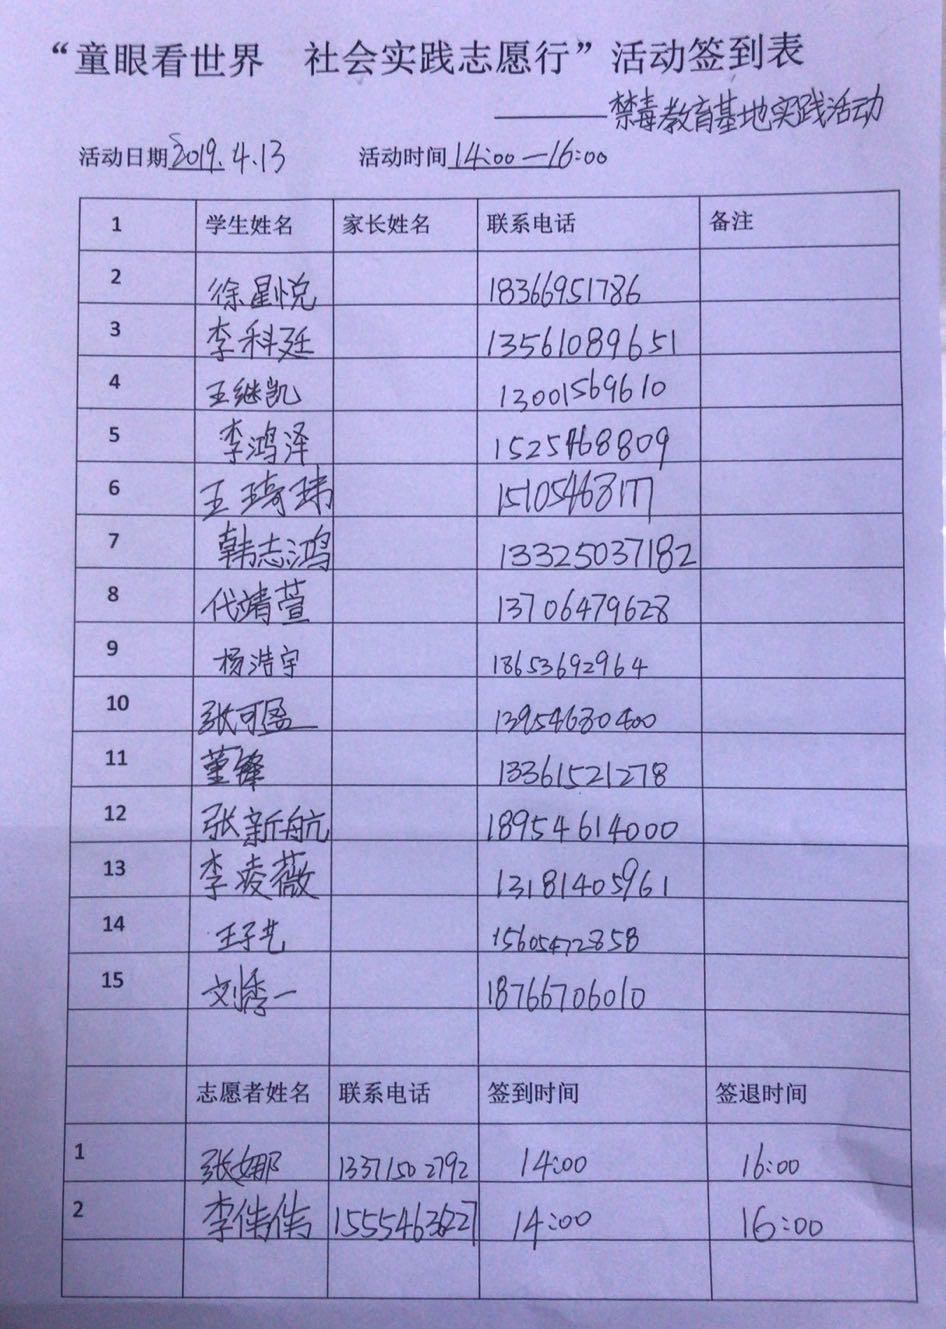 “童眼看世界　社会实践志愿行”活动签到表
———禁毒教育基地实践活动
活动日期2019.4.13　活动时间14:00—16:00
1 学生姓名 家长姓名 联系电话 备注
2 徐星悦 18366951786
3 李科廷 13561089651
4 王继凯 13001569610
5 李鸿泽 1525468809
6 王琦玮 15105468177
7 韩志鸿 13325037182
8 代靖萱 13706479628
9 杨浩宇 18653692964
10 张可盈 13954680400
11 董锋 13361521278
12 张新航 18954614000
13 李凌薇 13181405961
14 王子艺 15605472858
15 刘秀一 18766706010
志愿者姓名 联系电话 签到时间 签退时间
1 张娜 13371502792 14:00 16:00
2 李伟伟 14:00 16:00